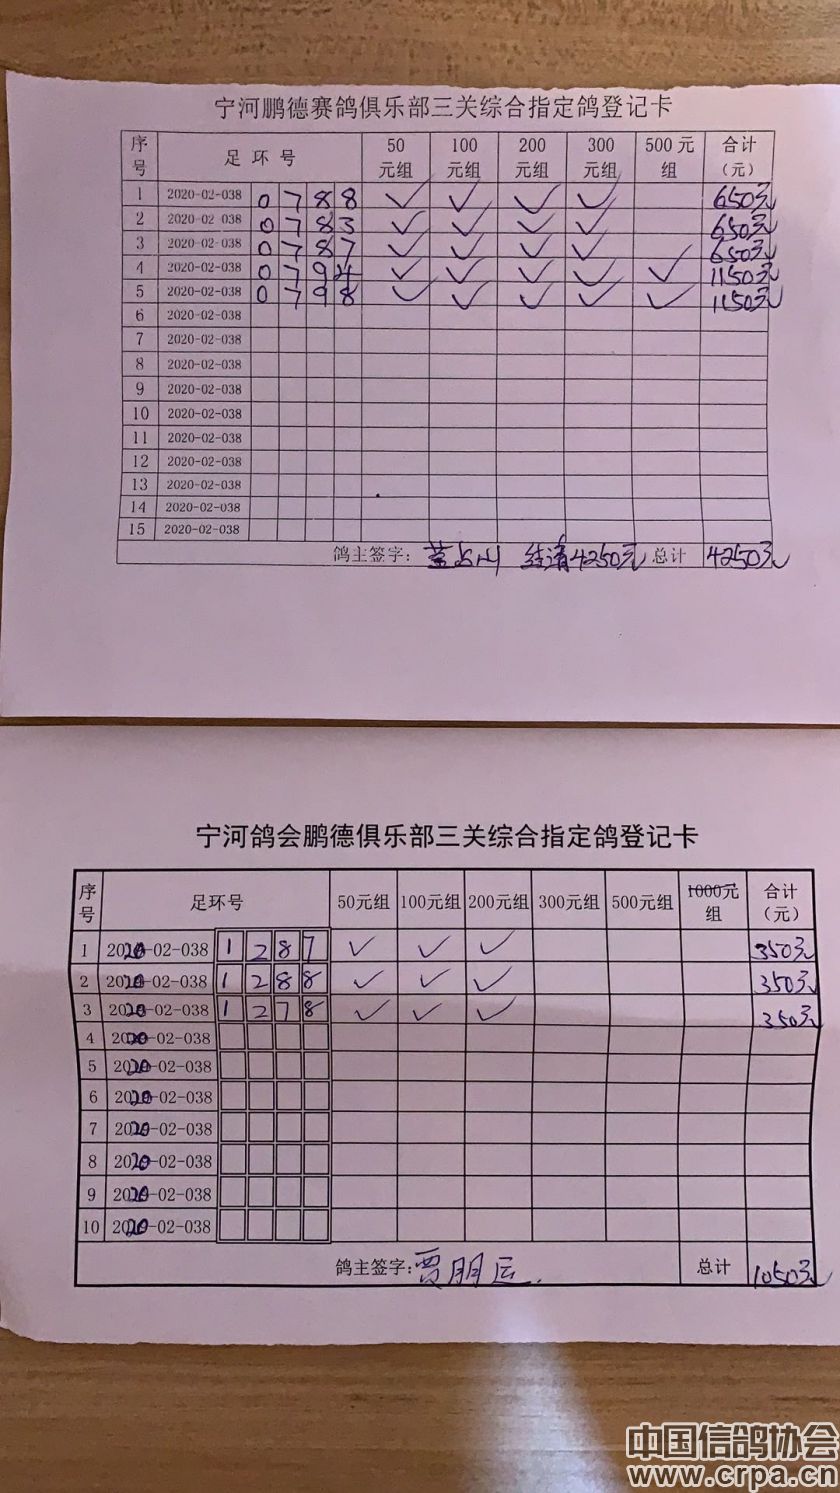 宁河鹏德赛鸽俱乐部三关综合指定鸽登记卡
序号 足环号 50元组 100元组 200元组 300元组 500元组 合计（元）
1 2020-02-038 0788 ✓ ✓ ✓ ✓ 650元
2 2020-02-038 0783 ✓ ✓ ✓ ✓ 650元
3 2020-02-038 0787 ✓ ✓ ✓ ✓ 650元
4 2020-02-038 0794 ✓ ✓ ✓ ✓ ✓ 1150元
5 2020-02-038 0798 ✓ ✓ ✓ ✓ ✓ 1150元
6 2020-02-038
7 2020-02-038
8 2020-02-038
9 2020-02-038
10 2020-02-038
11 2020-02-038
12 2020-02-038
13 2020-02-038
14 2020-02-038
15 2020-02-038
鸽主签字： 4250元 总计 4250元
宁河鸽会鹏德俱乐部三关综合指定鸽登记卡
序号 足环号 50元组 100元组 200元组 300元组 500元组 1000元组 合计（元）
1 2020-02-038 1287 ✓ ✓ ✓ 350元
2 2020-02-038 1288 ✓ ✓ ✓ 350元
3 2020-02-038 1278 ✓ ✓ ✓ 350元
4 2020-02-038
5 2020-02-038
6 2020-02-038
7 2020-02-038
8 2020-02-038
9 2020-02-038
10 2020-02-038
鸽主签字: 贾朋 总计 1050元
中国信鸽协会
www.crpa.cn